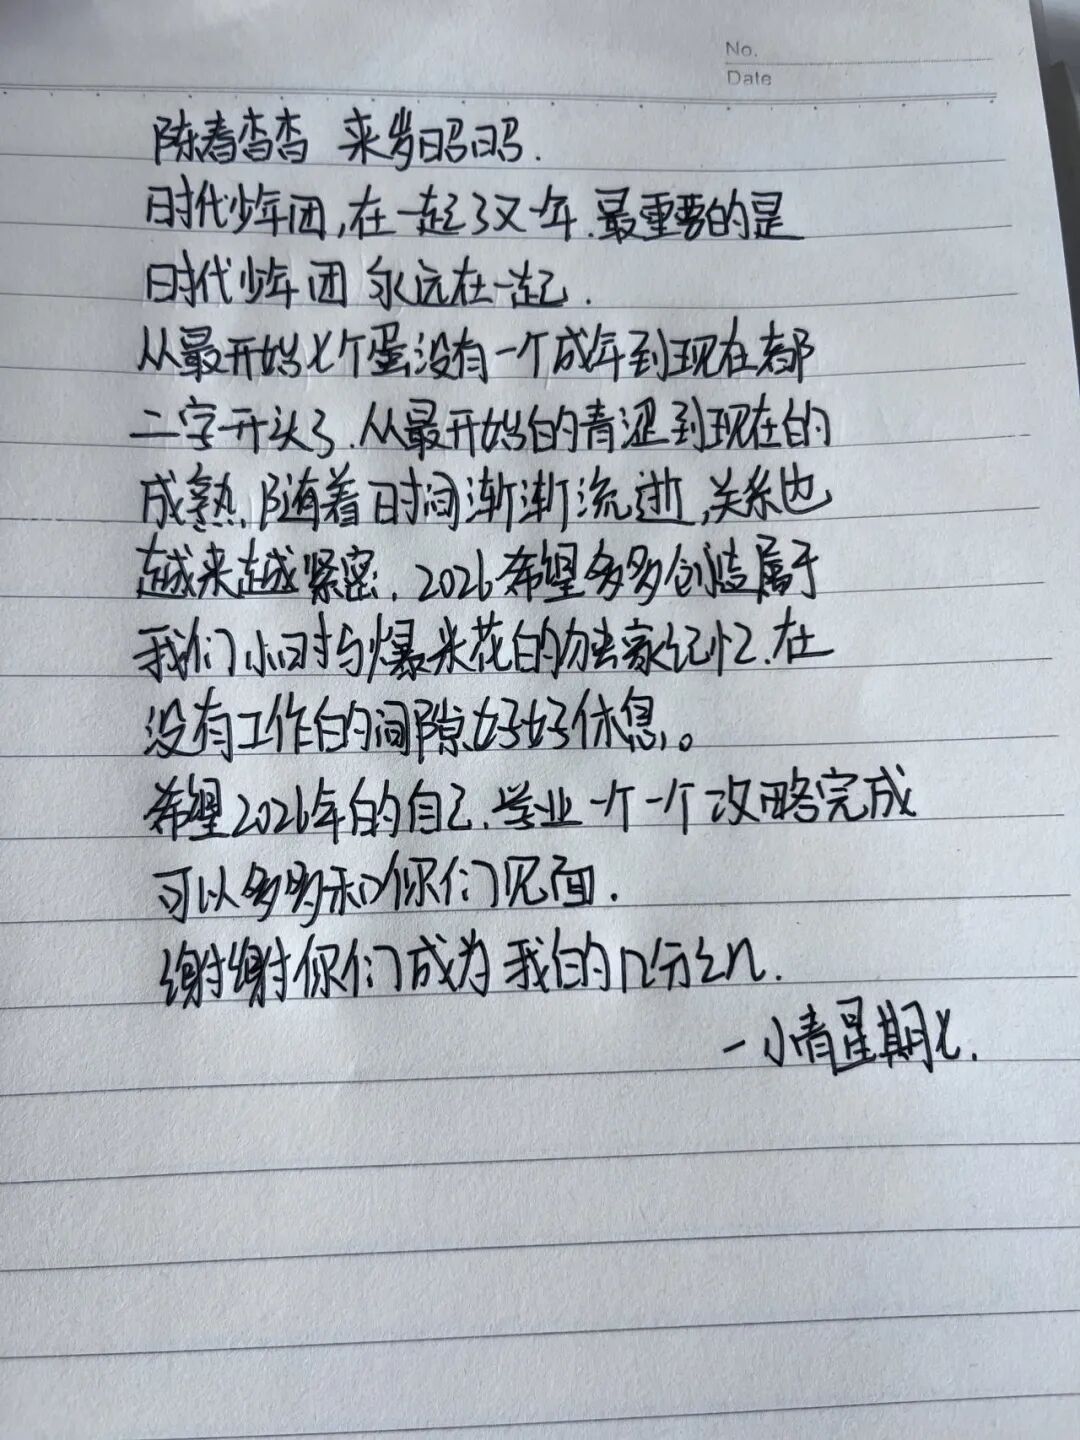 No.
Date
陈春杳杳 来岁昭昭.
时代少年团,在一起了又一年.最重要的是
时代少年团永远在一起.
从最开始七个蛋没有一个成年到现在都
二字开头了.从最开始的青涩到现在的
成熟.随着时间渐渐流逝,关系也
越来越紧密.2026希望多多创造属于
我们小时与爆米花的独家记忆.在
没有工作的间隙好好休息。
希望2026年的自己.学业一个一个攻略完成
可以多多和你们见面.
谢谢你们成为我的几分之n.
-小青星期七.